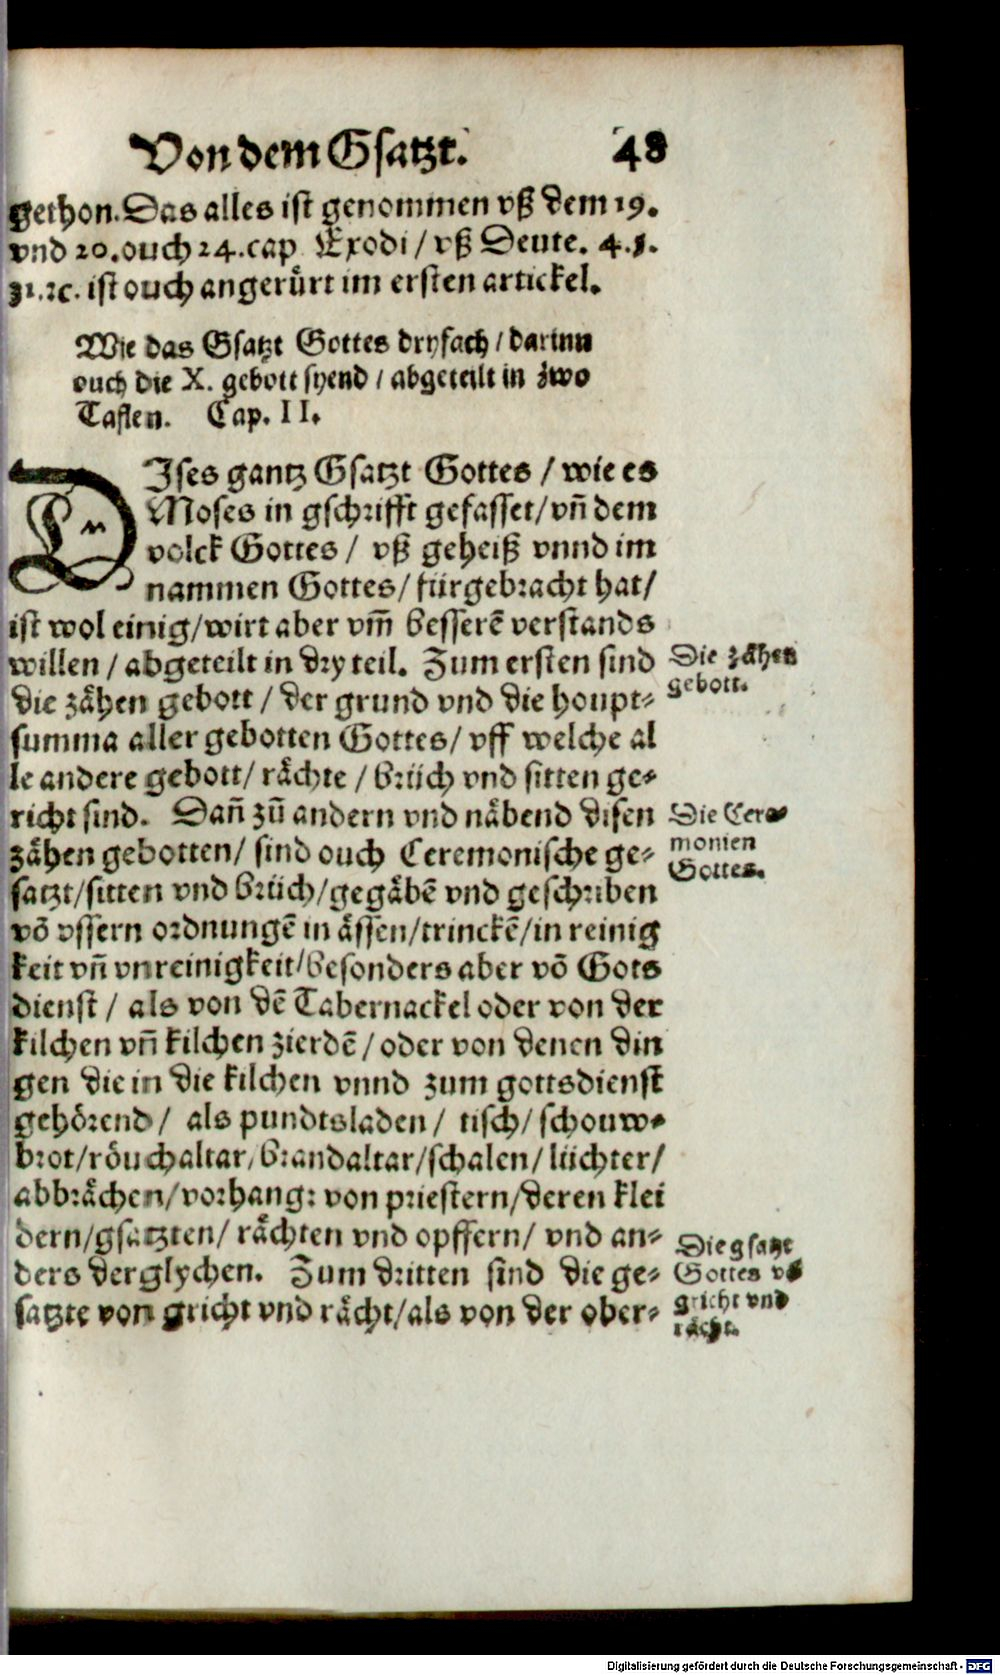 Von dem Gsatzt. 48
gethon. Das alles ist genommen vß dem 19.
vnd 20. ouch 24. cap Exodi / vß Deute. 4. 5.
31. ꝛc. ist ouch angerürt im ersten artickel.
Wie das Gsatzt Gottes dryfach / darinn
ouch die X. gebott syend / abgeteilt in zwo
Taflen. Cap. II.
DIses gantz Gsatzt Gottes / wie es
Moses in gschrifft gefasset / vñ dem
volck Gottes / vß geheiß vnnd im
nammen Gottes / fürgebracht hat /
ist wol einig / wirt aber vm̃ besserẽ verstands
willen / abgeteilt in dry teil. Zum ersten sind
Die zåhen
gebott.
die zåhen gebott / der grund vnd die houpt⸗
summa aller gebotten Gottes / vff welche al
le andere gebott / råchte / brüch vnd sitten ge⸗
richt sind. Dañ zů andern vnd nåbend disen
Die Cere⸗
monien
Gottes.
zåhen gebotten / sind ouch Ceremonische ge⸗
satzt / sitten vnd brüch / gegåbẽ vnd geschriben
võ vssern ordnungẽ in åssen / trinckẽ / in reinig
keit vñ vnreinigkeit / besonders aber võ Gots
dienst / als von dẽ Tabernackel oder von der
kilchen vñ kilchen zierdẽ / oder von denen din
gen die in die kilchen vnnd zum gottsdienst
gehörend / als pundtsladen / tisch / schouw⸗
brot / röuchaltar / brandaltar / schalen / lüchter /
abbråchen / vorhang: von priestern / deren klei
dern / gsatzten / råchten vnd opffern / vnd an⸗
ders derglychen. Zum dritten sind die ge⸗
satzte von gricht vnd råcht / als von der ober⸗
Die gsatzt
Gottes võ
gricht vnd
råcht.
Digitalisierung gefördert durch die Deutsche Forschungsgemeinschaft - DFG